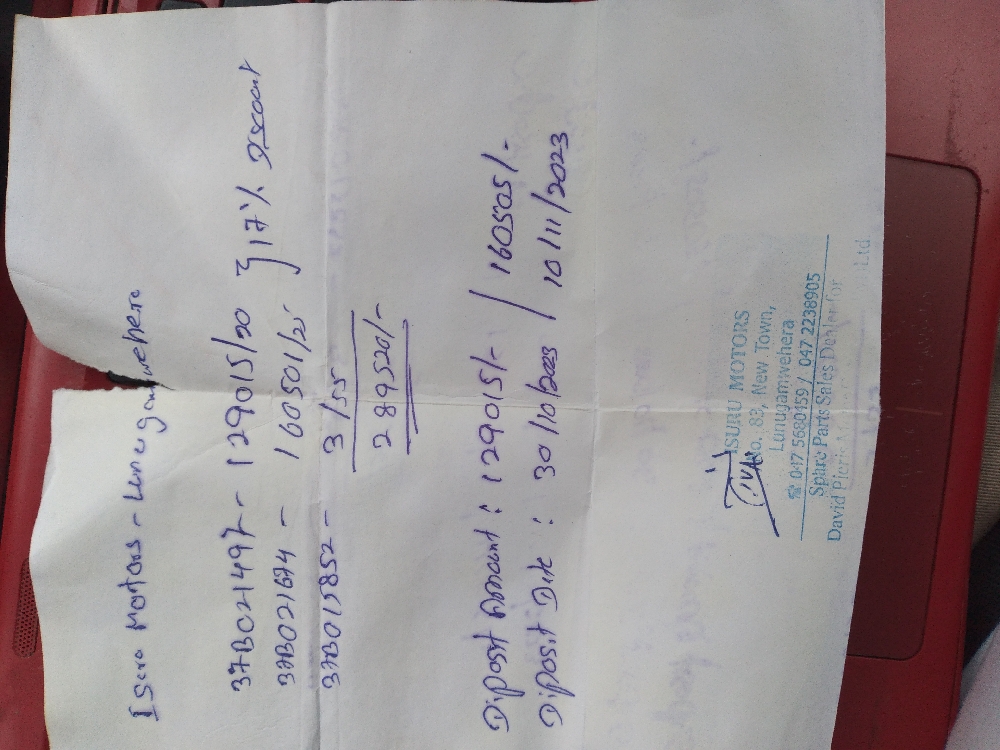 Isuru Mortors - Lunugamwehera
37B021497 - 129015/20 } 17% Discount
37B021674 - 160501/25
37B015852 - 3/55
289520/-
Diposit Amount : 129015/- / 160505/-
Diposit Date : 30/10/2023 / 10/11/2023
ISURU MOTORS
No. 83, New Town,
Lunugamwehera
☎ 047 5680159 / 047 2238905
Spare Parts Sales Dealer for
David Pieris
Ltd